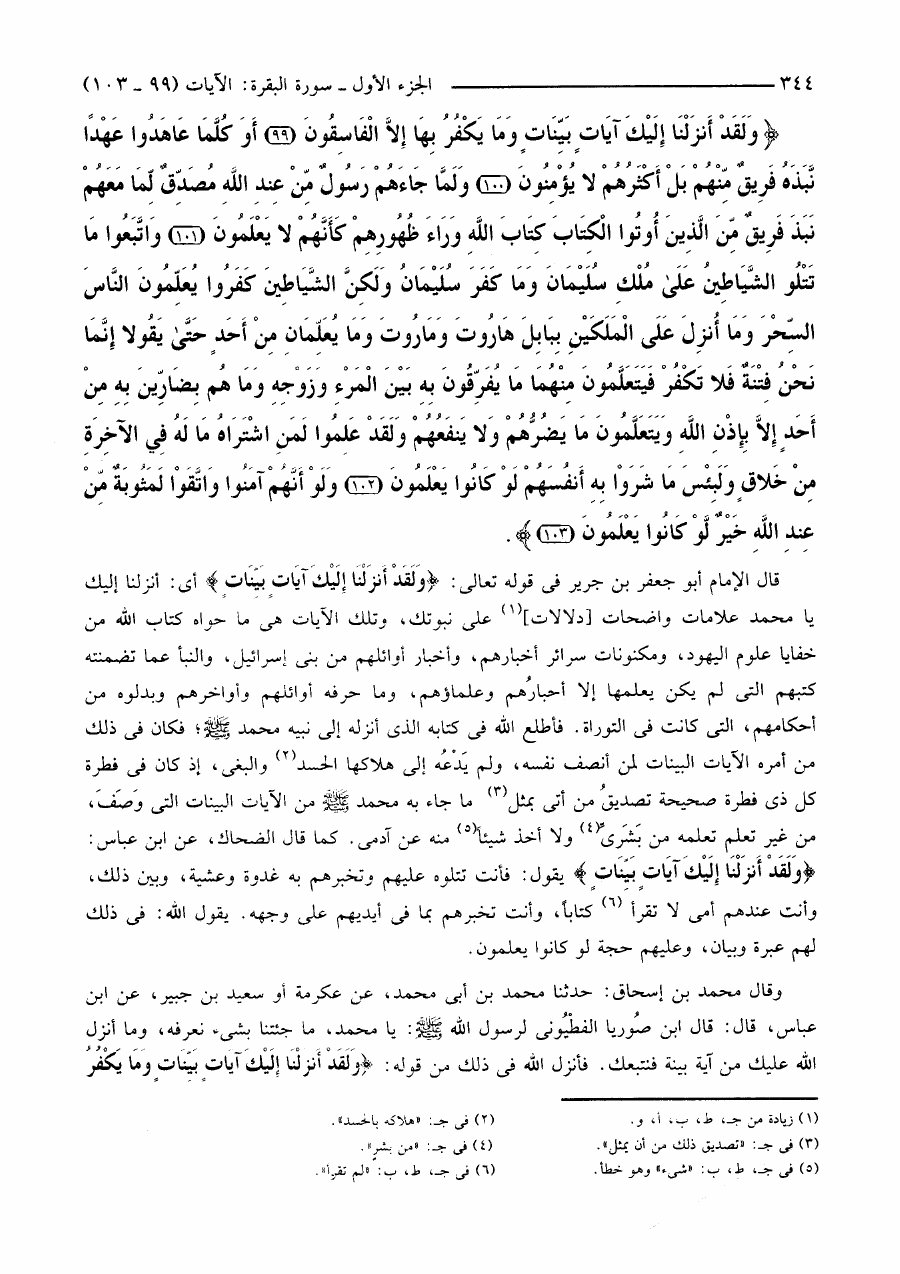 ٣٤٤ ــــــــــــــــــــــــــــــــــــ الجزء الأول ـ سورة البقرة: الآيات (٩٩ ـ ١٠٣)
﴿ وَلَقَدْ أَنزَلْنَا إِلَيْكَ آيَاتٍ بَيِّنَاتٍ وَمَا يَكْفُرُ بِهَا إِلاَّ الْفَاسِقُونَ (٩٩) أَوَ كُلَّمَا عَاهَدُوا عَهْدًا
نَّبَذَهُ فَرِيقٌ مِّنْهُم بَلْ أَكْثَرُهُمْ لا يُؤْمِنُونَ (١٠٠) وَلَمَّا جَاءَهُمْ رَسُولٌ مِّنْ عِندِ اللَّهِ مُصَدِّقٌ لِّمَا مَعَهُمْ
نَبَذَ فَرِيقٌ مِّنَ الَّذِينَ أُوتُوا الْكِتَابَ كِتَابَ اللَّهِ وَرَاءَ ظُهُورِهِمْ كَأَنَّهُمْ لا يَعْلَمُونَ (١٠١) وَاتَّبَعُوا مَا
تَتْلُو الشَّيَاطِينُ عَلَىٰ مُلْكِ سُلَيْمَانَ وَمَا كَفَرَ سُلَيْمَانُ وَلَكِنَّ الشَّيَاطِينَ كَفَرُوا يُعَلِّمُونَ النَّاسَ
السِّحْرَ وَمَا أُنزِلَ عَلَى الْمَلَكَيْنِ بِبَابِلَ هَارُوتَ وَمَارُوتَ وَمَا يُعَلِّمَانِ مِنْ أَحَدٍ حَتَّىٰ يَقُولا إِنَّمَا
نَحْنُ فِتْنَةٌ فَلا تَكْفُرْ فَيَتَعَلَّمُونَ مِنْهُمَا مَا يُفَرِّقُونَ بِهِ بَيْنَ الْمَرْءِ وَزَوْجِهِ وَمَا هُم بِضَارِّينَ بِهِ مِنْ
أَحَدٍ إِلاَّ بِإِذْنِ اللَّهِ وَيَتَعَلَّمُونَ مَا يَضُرُّهُمْ وَلا يَنفَعُهُمْ وَلَقَدْ عَلِمُوا لَمَنِ اشْتَرَاهُ مَا لَهُ فِي الآخِرَةِ
مِنْ خَلاقٍ وَلَبِئْسَ مَا شَرَوْا بِهِ أَنفُسَهُمْ لَوْ كَانُوا يَعْلَمُونَ (١٠٢) وَلَوْ أَنَّهُمْ آمَنُوا وَاتَّقَوْا لَمَثُوبَةٌ مِّنْ
عِندِ اللَّهِ خَيْرٌ لَّوْ كَانُوا يَعْلَمُونَ (١٠٣) ﴾ .
قال الإمام أبو جعفر بن جرير فى قوله تعالى: ﴿وَلَقَدْ أَنزَلْنَا إِلَيْكَ آيَاتٍ بَيِّنَاتٍ ﴾ أى: أنزلنا إليك
يا محمد علامات واضحات [دلالات](١) على نبوتك، وتلك الآيات هى ما حواه كتاب الله من
خفايا علوم اليهود، ومكنونات سرائر أخبارهم، وأخبار أوائلهم من بنى إسرائيل، والنبأ عما تضمنته
كتبهم التى لم يكن يعلمها إلا أحبارُهم وعلماؤهم، وما حرفه أوائلهم وأواخرهم وبدلوه من
أحكامهم، التى كانت فى التوراة. فأطلع الله فى كتابه الذى أنزله إلى نبيه محمد ﷺ؛ فكان فى ذلك
من أمره الآيات البينات لمن أنصف نفسه، ولم يَدْعُه إلى هلاكها الحسد(٢) والبغى، إذ كان فى فطرة
كل ذى فطرة صحيحة تصديقُ من أتى بمثل(٣) ما جاء به محمد ﷺ من الآيات البينات التى وَصَفَ،
من غير تعلم تعلمه من بَشَرىٍّ(٤) ولا أخذ شيئاً(٥) منه عن آدمى. كما قال الضحاك، عن ابن عباس:
﴿وَلَقَدْ أَنزَلْنَا إِلَيْكَ آيَاتٍ بَيِّنَاتٍ ﴾ يقول: فأنت تتلوه عليهم وتخبرهم به غدوة وعشية، وبين ذلك،
وأنت عندهم أمى لا تقرأ (٦) كتاباً، وأنت تخبرهم بما فى أيديهم على وجهه. يقول الله: فى ذلك
لهم عبرة وبيان، وعليهم حجة لو كانوا يعلمون.
وقال محمد بن إسحاق: حدثنا محمد بن أبى محمد، عن عكرمة أو سعيد بن جبير، عن ابن
عباس، قال: قال ابن صُوريا الفطْيُونى لرسول الله ﷺ: يا محمد، ما جئتنا بشىء نعرفه، وما أنزل
الله عليك من آية بينة فنتبعك. فأنزل الله فى ذلك من قوله: ﴿وَلَقَدْ أَنزَلْنَا إِلَيْكَ آيَاتٍ بَيِّنَاتٍ وَمَا يَكْفُرُ
(١) زيادة من جـ، ط، ب، أ، و. (٢) فى جـ: «هلاكه بالحسد».
(٣) فى جـ: «تصديق ذلك من أن بمثل». (٤) فى جـ: «من بشرٍ».
(٥) فى جـ، ط، ب: «شىء» وهو خطأ. (٦) فى جـ، ط، ب: «لم تقرأ».